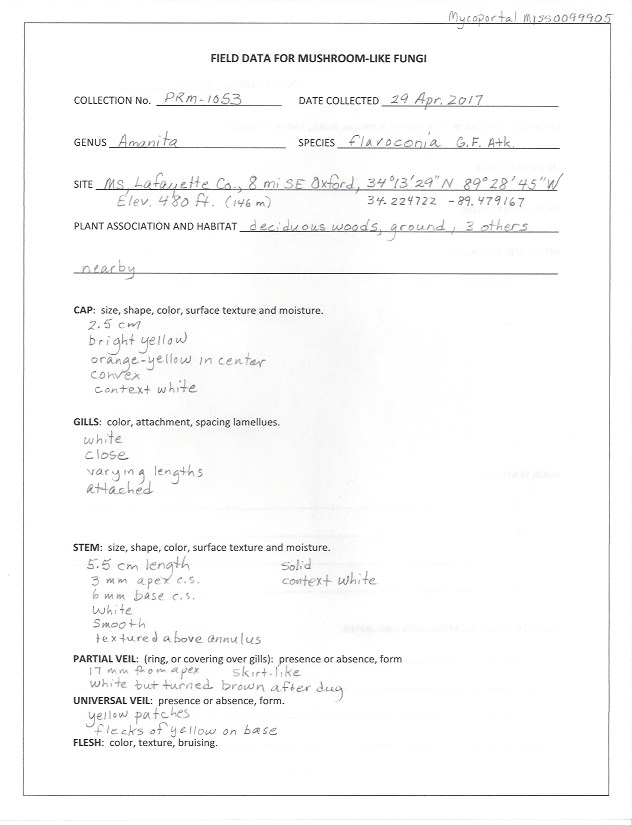 Mycoportal MISS0099905
FIELD DATA FOR MUSHROOM-LIKE FUNGI
COLLECTION No. PRM-1053 DATE COLLECTED 29 Apr. 2017
GENUS Amanita SPECIES flavoconia G.F. Atk.
SITE MS, Lafayette Co., 8 mi SE Oxford, 34°13'29"N 89°28'45"W
Elev. 480 ft. (146 m) 34.224722 -89.479167
PLANT ASSOCIATION AND HABITAT deciduous woods, ground, 3 others
nearby
CAP: size, shape, color, surface texture and moisture.
2.5 cm
bright yellow
orange-yellow in center
convex
context white
GILLS: color, attachment, spacing lamellues.
white
close
varying lengths
attached
STEM: size, shape, color, surface texture and moisture.
5.5 cm length solid
3 mm apex c.s. context white
6 mm base c.s.
White
Smooth
textured above annulus
PARTIAL VEIL: (ring, or covering over gills): presence or absence, form
17 mm from apex skirt-like
white but turned brown after dug
UNIVERSAL VEIL: presence or absence, form.
yellow patches
flecks of yellow on base
FLESH: color, texture, bruising.